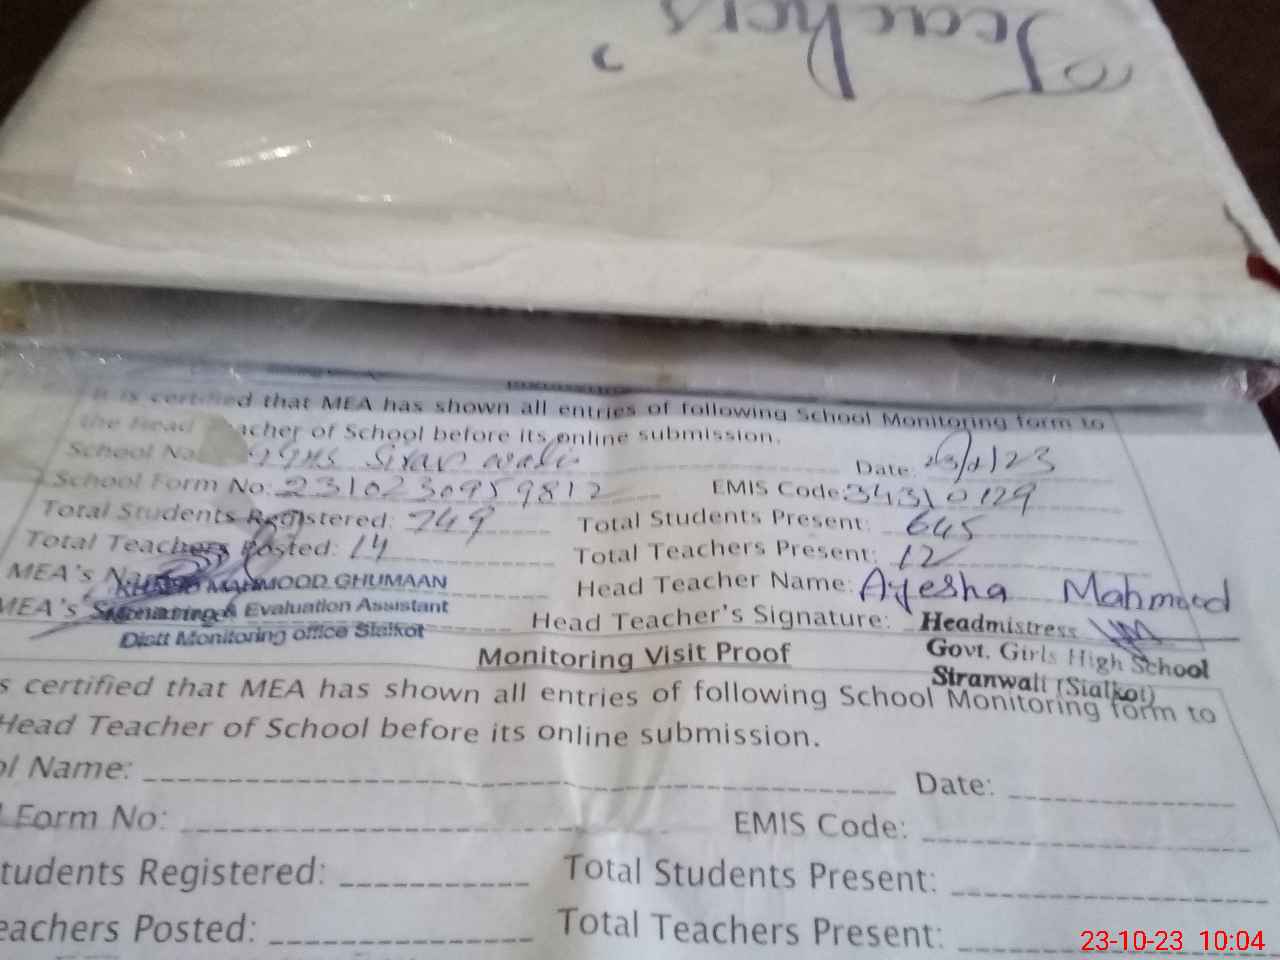 Teachers'
It is certified that MEA has shown all entries of following School Monitoring form to
the Head Teacher of School before its online submission.
School Na GGHS Siran wali Date: /23
School Form No: 2310230959812 EMIS Code: 34310129
Total Students Registered: 749 Total Students Present: 645
Total Teachers Posted: 14 Total Teachers Present: 12
MEA's Na MAHMOOD GHUMAAN Head Teacher Name: Ayesha Mahmood
MEA's Monitoring & Evaluation Assistant Head Teacher's Signature: Headmistress
Distt Monitoring office Sialkot
Govt. Girls High School
Stranwali (Sialkot)
Monitoring Visit Proof
s certified that MEA has shown all entries of following School Monitoring form to
Head Teacher of School before its online submission.
ol Name: Date:
l Form No: EMIS Code:
tudents Registered: Total Students Present:
eachers Posted: Total Teachers Present:
23-10-23 10:04